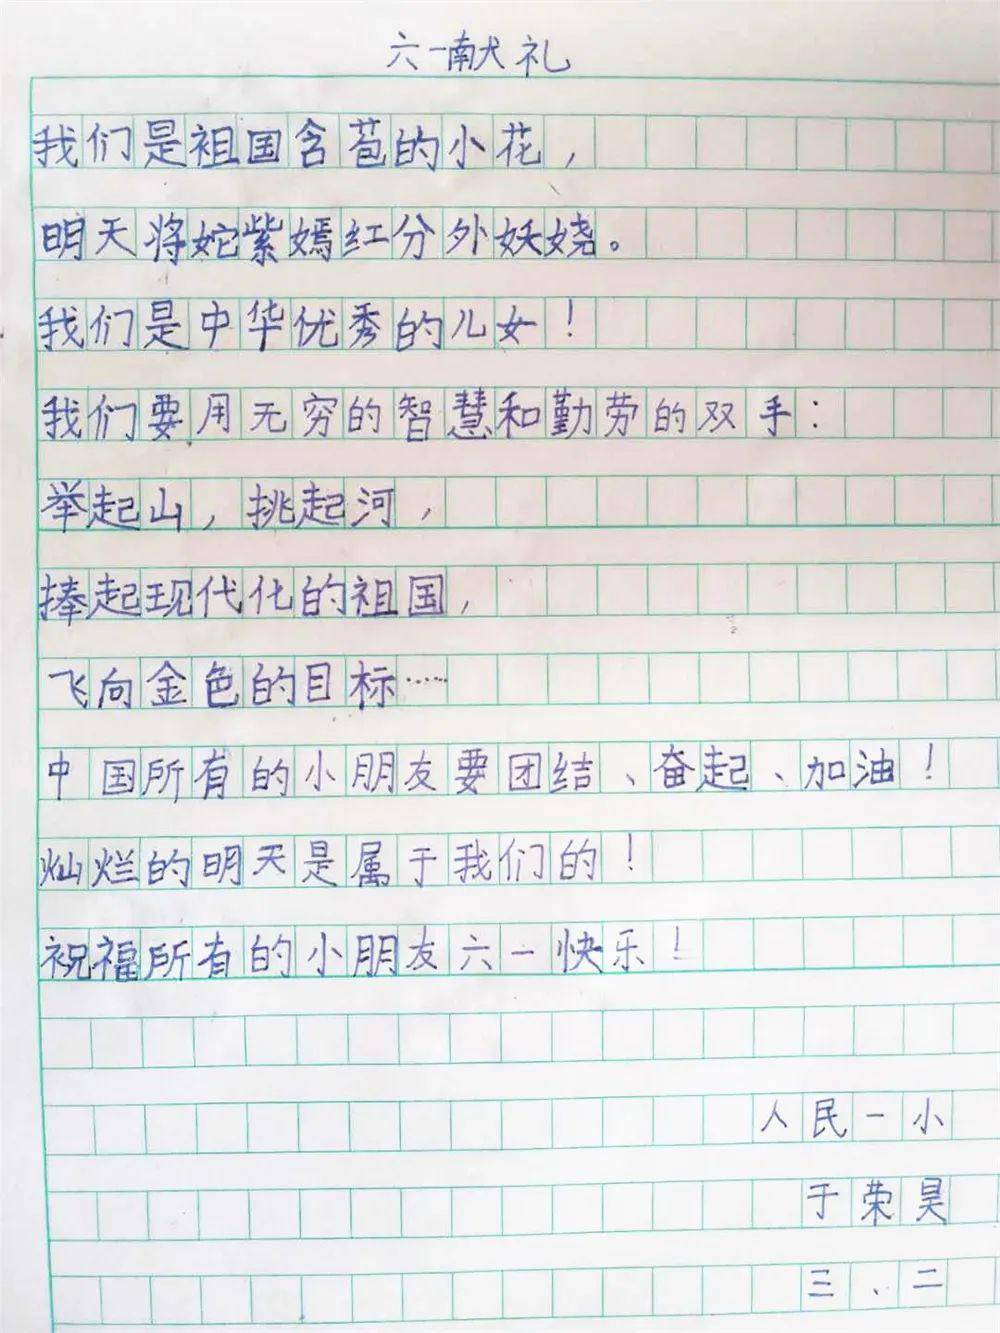 六一献礼
我们是祖国含苞的小花，
明天将姹紫嫣红分外妖娆。
我们是中华优秀的儿女！
我们要用无穷的智慧和勤劳的双手：
举起山，挑起河，
捧起现代化的祖国，
飞向金色的目标……
中国所有的小朋友要团结、奋起、加油！
灿烂的明天是属于我们的！
祝福所有的小朋友六一快乐！
人民一小
于荣昊
三、二